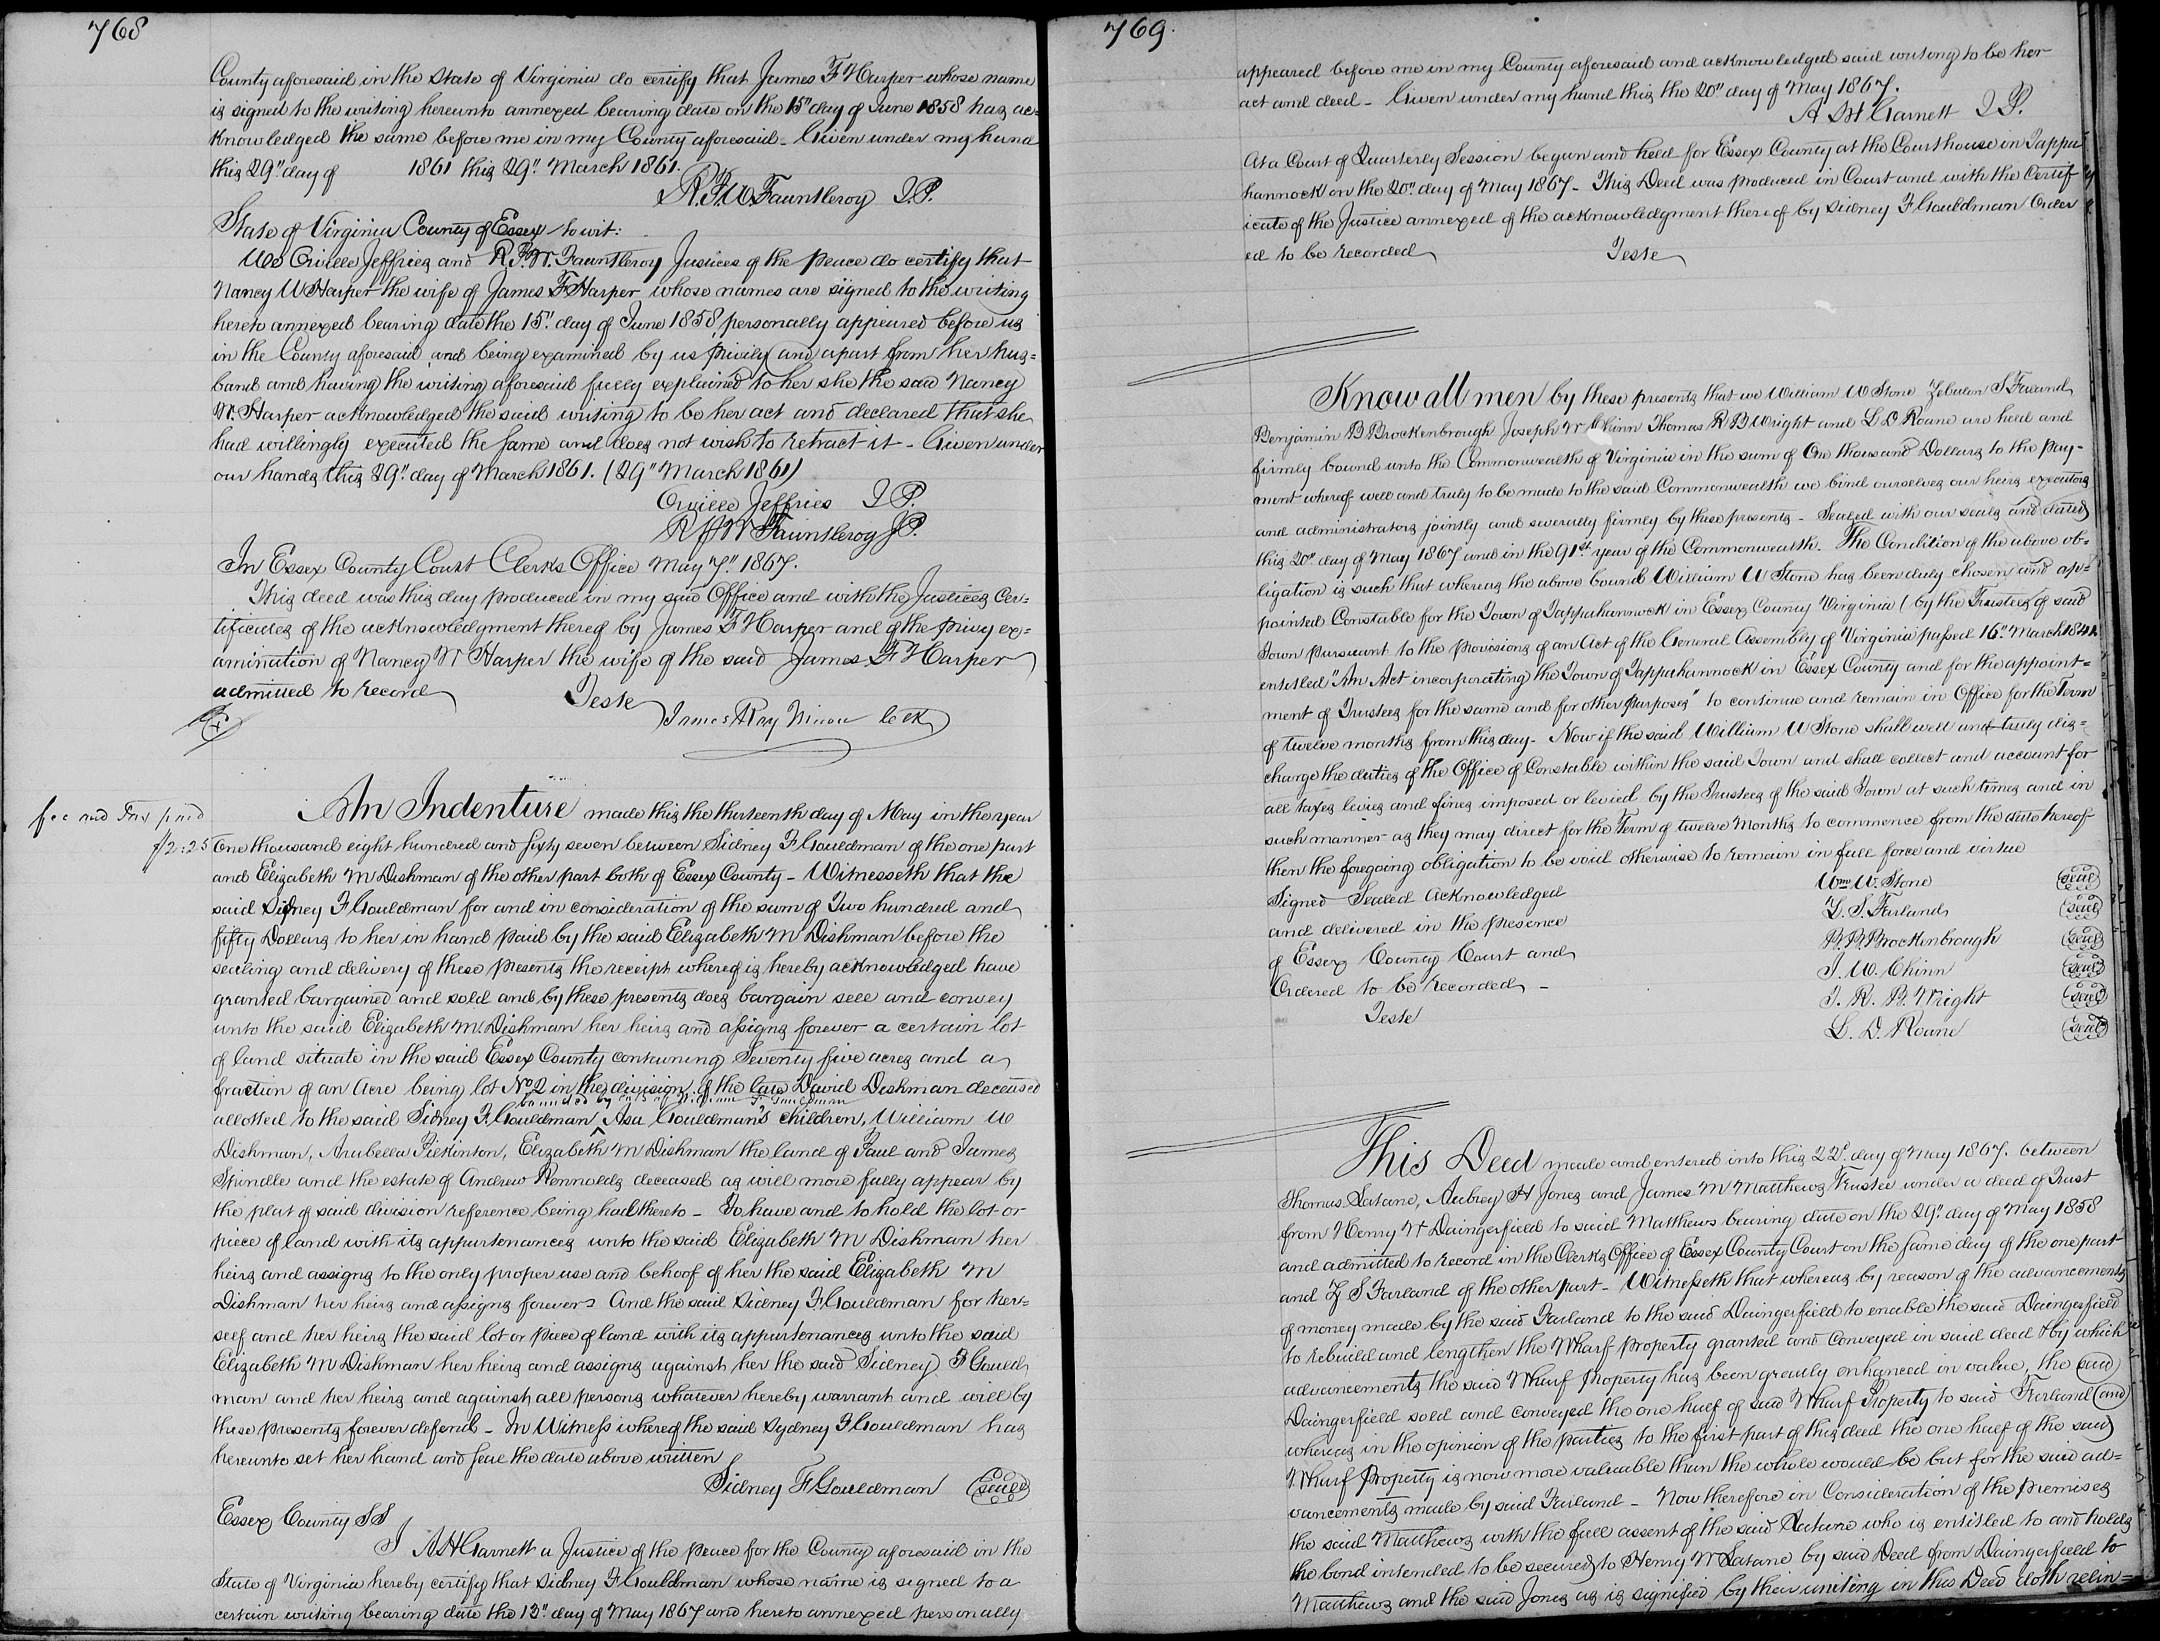 768
County aforesaid in the State of Virginia do certify that James F Harper whose name
is signed to the writing hereunto annexed bearing date on the 15" day of June 1858 has ac=
knowledged the same before me in my County aforesaid - Given under my hand
this 29" day of 1861 this 29" March 1861.
R. P. W. Fauntleroy J.P.
State of Virginia County of Essex to wit:
We Orville Jeffries and R. P. W. Fauntleroy Justices of the peace do certify that
Nancy W Harper the wife of James F Harper whose names are signed to the writing
hereto annexed bearing date the 15" day of June 1858, personally appeared before us
in the County aforesaid and being examined by us privily and apart from her hus=
band and having the writing aforesaid fully explained to her she the said Nancy
W. Harper acknowledged the said writing to be her act and declared that she
had willingly executed the same and does not wish to retract it - Given under
our hands this 29" day of March 1861. (29" March 1861)
Orville Jeffries J.P.
R P W Fauntleroy J.P.
In Essex County Court Clerks Office May 7" 1867.
This deed was this day produced in my said Office and with the Justices Cer=
tificates of the acknowledgment thereof by James F Harper and of the privy ex=
amination of Nancy W Harper the wife of the said James F Harper
admitted to record
Teste
James Roy Micou Clerk
fee and Tax paid
$2.25
An Indenture made this the thirteenth day of May in the year
One thousand eight hundred and sixty seven between Sidney F Gouldman of the one part
and Elizabeth M Dishman of the other part both of Essex County - Witnesseth that the
said Sidney F Gouldman for and in consideration of the sum of Two hundred and
fifty Dollars to her in hand paid by the said Elizabeth M Dishman before the
sealing and delivery of these presents the receipt whereof is hereby acknowledged have
granted bargained and sold and by these presents does bargain sell and convey
unto the said Elizabeth M. Dishman her heirs and assigns forever a certain lot
of land situate in the said Essex County containing Seventy five acres and a
fraction of an Acre being lot No 2 in the division of the late David Dishman deceased
bounded by lands of William F Gouldman
allotted to the said Sidney F. Gouldman ^ Asa Gouldman's children, William W
Dishman, Arabella Pilkinton, Elizabeth M Dishman the land of Paul and James
Spindle and the estate of Andrew Rennolds deceased as will more fully appear by
the plat of said division reference being had thereto - To have and to hold the lot or
piece of land with its appurtenances unto the said Elizabeth M Dishman her
heirs and assigns to the only proper use and behoof of her the said Elizabeth M
Dishman her heirs and assigns forever And the said Sidney F. Gouldman for her=
self and her heirs the said lot or piece of land with its appurtenances unto the said
Elizabeth M Dishman her heirs and assigns against her the said Sidney F Gould
man and her heirs and against all persons whatever hereby warrant and will by
these presents forever defend - In Witness whereof the said Sydney F Gouldman has
hereunto set her hand and seal the date above written
Sidney F Gouldman (seal)
Essex County SS
I A H Garnett a Justice of the peace for the County aforesaid in the
State of Virginia hereby certify that Sidney F Gouldman whose name is signed to a
certain writing bearing date the 13" day of May 1867 and hereto annexed personally
769.
appeared before me in my County aforesaid and acknowledged said writing to be her
act and deed - Given under my hand this the 20" day of May 1867.
A H Garnett J P.
At a Court of Quarterly Session begun and held for Essex County at the Courthouse in Tappa
hannock on the 20" day of May 1867 - This Deed was produced in Court and with the Certif
icate of the Justice annexed of the acknowledgment thereof by Sidney F Gouldman Order
ed to be recorded
Teste
Know all men by these presents that we William W Stone Zebulon S Farland
Benjamin B Brockenbrough Joseph W Chinn Thomas R B Wright and L D Roane are held and
firmly bound unto the Commonwealth of Virginia in the sum of One thousand Dollars to the pay-
ment whereof well and truly to be made to the said Commonwealth we bind ourselves our heirs executors
and administrators jointly and severally firmly by these presents - Sealed with our seals and dated
this 20" day of May 1867 and in the 91st year of the Commonwealth. The Condition of the above ob=
ligation is such that whereas the above bound William W Stone has been duly chosen and ap=
pointed Constable for the Town of Tappahannock in Essex County Virginia (by the Trustees of said
Town pursuant to the provisions of an Act of the General Assembly of Virginia passed 16" March 1841.
entitled "An Act incorporating the Town of Tappahannock in Essex County and for the appoint=
ment of Trustees for the same and for other purposes" to continue and remain in Office for the Term
of twelve months from this day - Now if the said William W Stone shall well and truly dis=
charge the duties of the Office of Constable within the said Town and shall collect and account for
all taxes levies and fines imposed or levied by the Trustees of the said Town at such times and in
such manner as they may direct for the Term of twelve Months to commence from the date hereof
then the foregoing obligation to be void otherwise to remain in full force and virtue
Signed Sealed Acknowledged Wm W. Stone (seal)
and delivered in the presence Z. S. Farland (seal)
of Essex County Court and B. B. Brockenbrough (seal)
Ordered to be recorded - J. W. Chinn (seal)
Teste T. R. B. Wright (seal)
L. D. Roane (seal)
This Deed made and entered into this 22d. day of May 1867. between
Thomas Latane, Aubrey H Jones and James M Matthews Trustee under a deed of Trust
from Henry W Daingerfield to said Matthews bearing date on the 29" day of May 1858
and admitted to record in the Clerks Office of Essex County Court on the same day of the one part
and Z S Farland of the other part - Witnesseth that whereas by reason of the advancements
of money made by the said Farland to the said Daingerfield to enable the said Daingerfield
to rebuild and lengthen the Wharf property granted and conveyed in said deed & by which
advancements the said Wharf property has been greatly enhanced in value, the said
Daingerfield sold and conveyed the one half of said Wharf Property to said Farland (and)
whereas in the opinion of the parties to the first part of this deed the one half of the said
Wharf Property is now more valuable than the whole would be but for the said ad=
vancements made by said Farland - Now therefore in Consideration of the premises
the said Matthews with the full assent of the said Latane who is entitled to and holds
the bond intended to be secured to Henry W Latane by said Deed from Daingerfield to
Matthews and the said Jones as is signified by their uniting in this Deed doth relin=